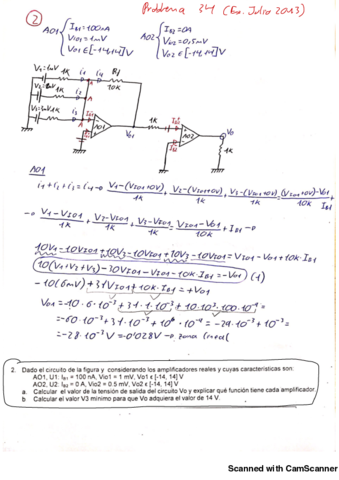 Problema 34 (Ex. Julio 2013)
2
AO1 { IB1=100nA
Vio1=1mV
Vo1 ∈ [-14,14] V
AO2 { IB2=0A
Vio2=0,5mV
Vo2 ∈ [-14,14] V
V1=1mV 1K i1 i4 Rf
10K
V2=2mV 1K i2
V3=3mV 1K i3
AO1
Vo1
1K
AO2
Vo
1K
AO1
i1+i2+i3=i4 → V1-(Vio1+0V)/1K + V2-(Vio1+0V)/1K + V3-(Vio1+0V)/1K = (Vio1+0V)-Vo1/10K + IB1
→ V1-Vio1/1K + V2-Vio1/1K + V3-Vio1/1K = Vio1-Vo1/10K + IB1 →
10V1-10Vio1+10V2-10Vio1+10V3-10Vio1=Vio1-Vo1+10K·IB1
10(V1+V2+V3)-30Vio1-Vio1-10K·IB1=-Vo1) (1)
-10(6mV)+31Vio1+10K·IB1=+Vo1
Vo1=-10·6·10⁻³+31·1·10⁻³+10·10³·100·10⁻⁹=
=-60·10⁻³+31·10⁻³+10⁶·10⁻⁹=-29·10⁻³+10⁻³=
=-28·10⁻³V=-0'028V → zona lineal
2. Dado el circuito de la figura y considerando los amplificadores reales y cuyas características son:
AO1, U1: IB1 = 100 nA, Vio1 = 1 mV, Vo1 ε [-14, 14] V
AO2, U2: IB2 = 0 A, Vio2 = 0.5 mV, Vo2 ε [-14, 14] V
a. Calcular el valor de la tensión de salida del circuito Vo y explicar qué función tiene cada amplificador.
b. Calcular el valor V3 mínimo para que Vo adquiera el valor de 14 V.
Scanned with CamScanner